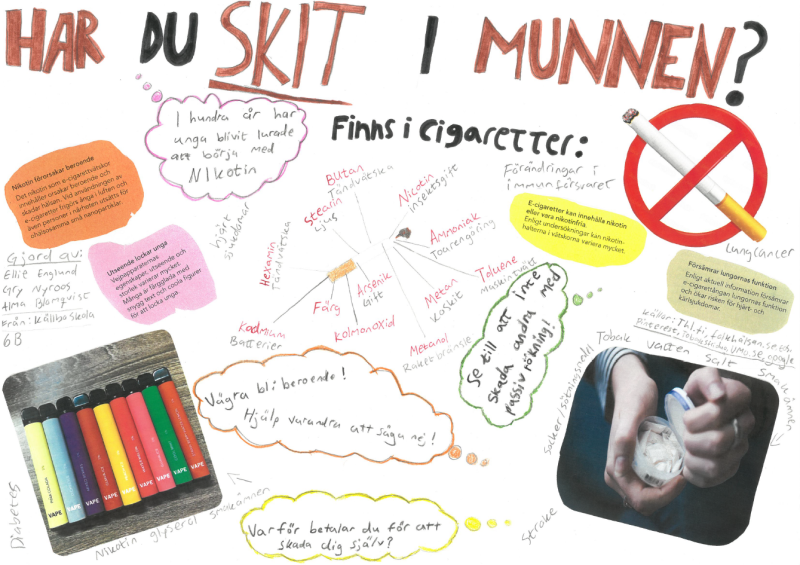 HAR DU SKIT I MUNNEN?
I hundra år har
unga blivit lurade
att börja med
NIKOTIN
Finns i cigaretter:
Butan
Tändvätska
Stearin
Ljus
Hexamin
Tändvätska
Nikotin
insektsgift
Ammoniak
Toarengöring
Toluene
Metan
Metanol
Raketbränsle
Arsenik
Gift
Färg
Kolmonoxid
Kadmium
Batterier
Förändringar i
immunförsvaret
hjärt
sjukdomar
Lungcancer
Nikotin förorsakar beroende
Det nikotin som e-cigarettvätskor
innehåller orsakar beroende och
skadar hälsan. Vid användningen av
e-cigaretter frigörs ånga i luften och
även personer i närheten utsätts för
ohälsosamma små nanopartiklar.
Gjord av:
Ellie Englund
Gry Nyroos
Alma Blomqvist
Från: Källbo skola
6B
Utseende lockar unga
egenskaper, utseende och
storlek varierar mycket.
Många är färgglada med
snygg text och coola figurer
för att locka unga.
E-cigaretter kan innehålla nikotin
eller vara nikotinfria.
Enligt undersökningar kan nikotin-
halterna i vätskorna variera mycket.
Försämrar lungornas funktion
Enligt aktuell information försämrar
e-cigarettångan lungornas funktion
och ökar risken för hjärt- och
kärlsjukdomar.
Se till att inte
skada andra med
passiv rökning!
Vägra bli beroende!
Hjälp varandra att säga nej!
Varför betalar du för att
skada dig själv?
Tobak
vatten
salt
smakämnen
Stroke
VAPE
VAPE
VAPE
VAPE
VAPE
VAPE
VAPE
VAPE
Diabetes
Nikotin glyserol smakämnen